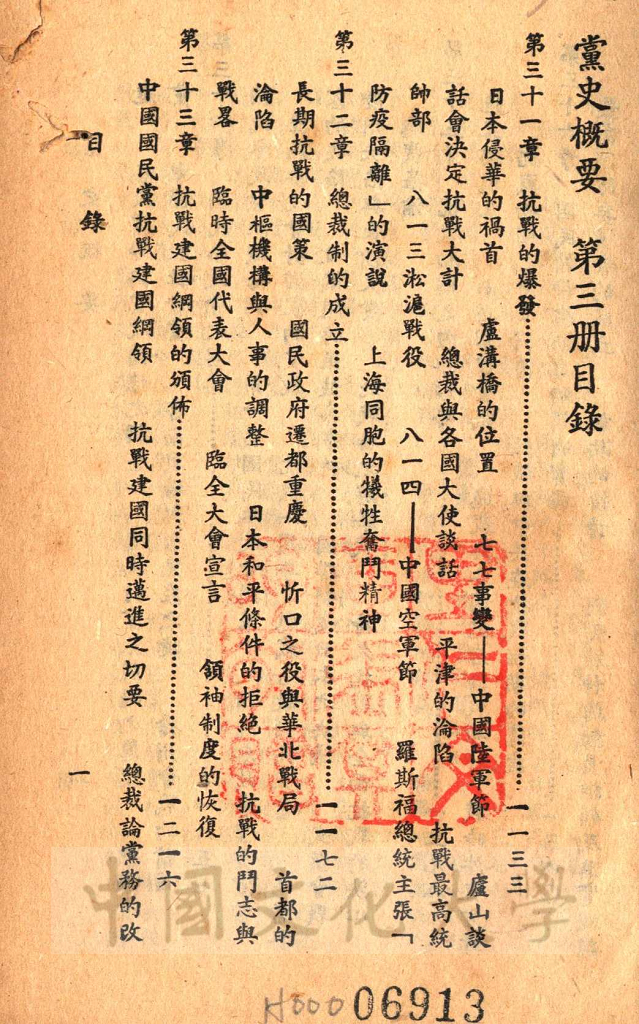 黨史概要　第三册目錄
第三十一章　抗戰的爆發⋯⋯⋯⋯一一三三
日本侵華的禍首　盧溝橋的位置　七七事變——中國陸軍節　廬山談
話會決定抗戰大計　總裁與各國大使談話　平津的淪陷　抗戰最高統
帥部　八一三淞滬戰役　八一四——中國空軍節　羅斯福總統主張「
防疫隔離」的演說　上海同胞的犧牲奮鬥精神
第三十二章　總裁制的成立⋯⋯⋯⋯一一七二
長期抗戰的國策　國民政府遷都重慶　忻口之役與華北戰局　首都的
淪陷　中樞機構與人事的調整　日本和平條件的拒絕　抗戰的鬥志與
戰畧　臨時全國代表大會　臨全大會宣言　領袖制度的恢復
第三十三章　抗戰建國綱領的頒佈⋯⋯⋯⋯一二一六
中國國民黨抗戰建國綱領　抗戰建國同時邁進之切要　總裁論黨務的改
目錄
一
中國文化大學
H000 06913